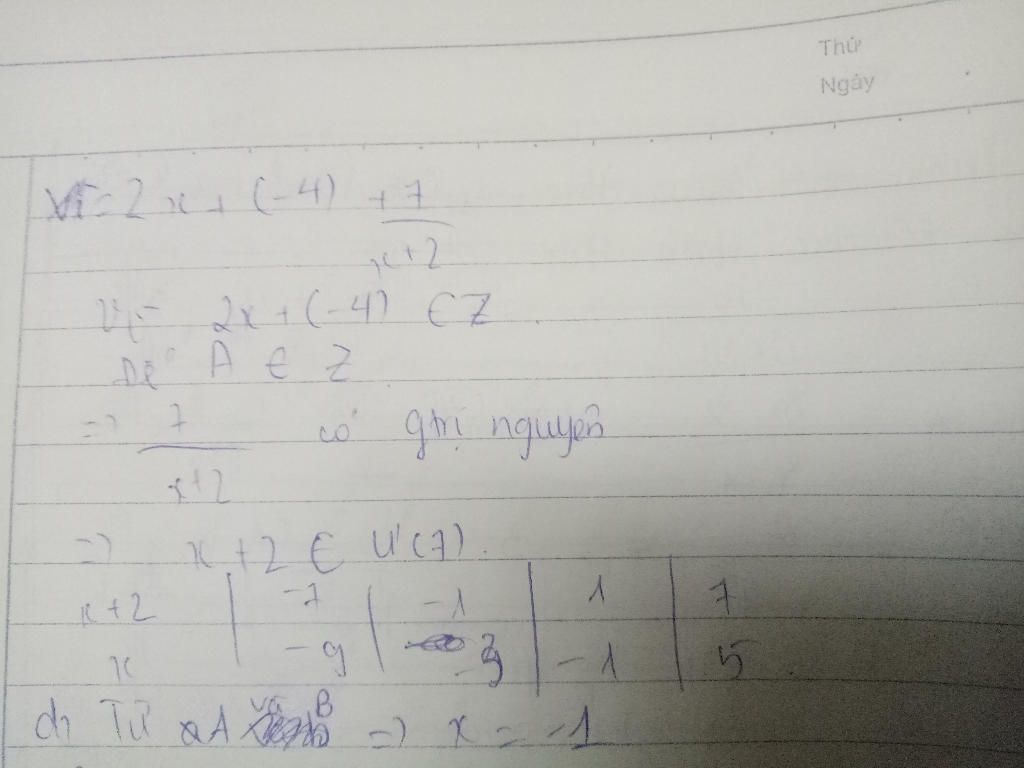 Thứ
Ngày
= 2x + (-4) + 7
x+2
Vì 2x + (-4) ∈ Z
Để A ∈ Z
=> 7 có gtrị nguyên
x+2
=> x + 2 ∈ Ư(7).
x+2 | -7 | -1 | 1 | 7
x | -9 | -3 | -1 | 5
d, Từ A và B => x = -1